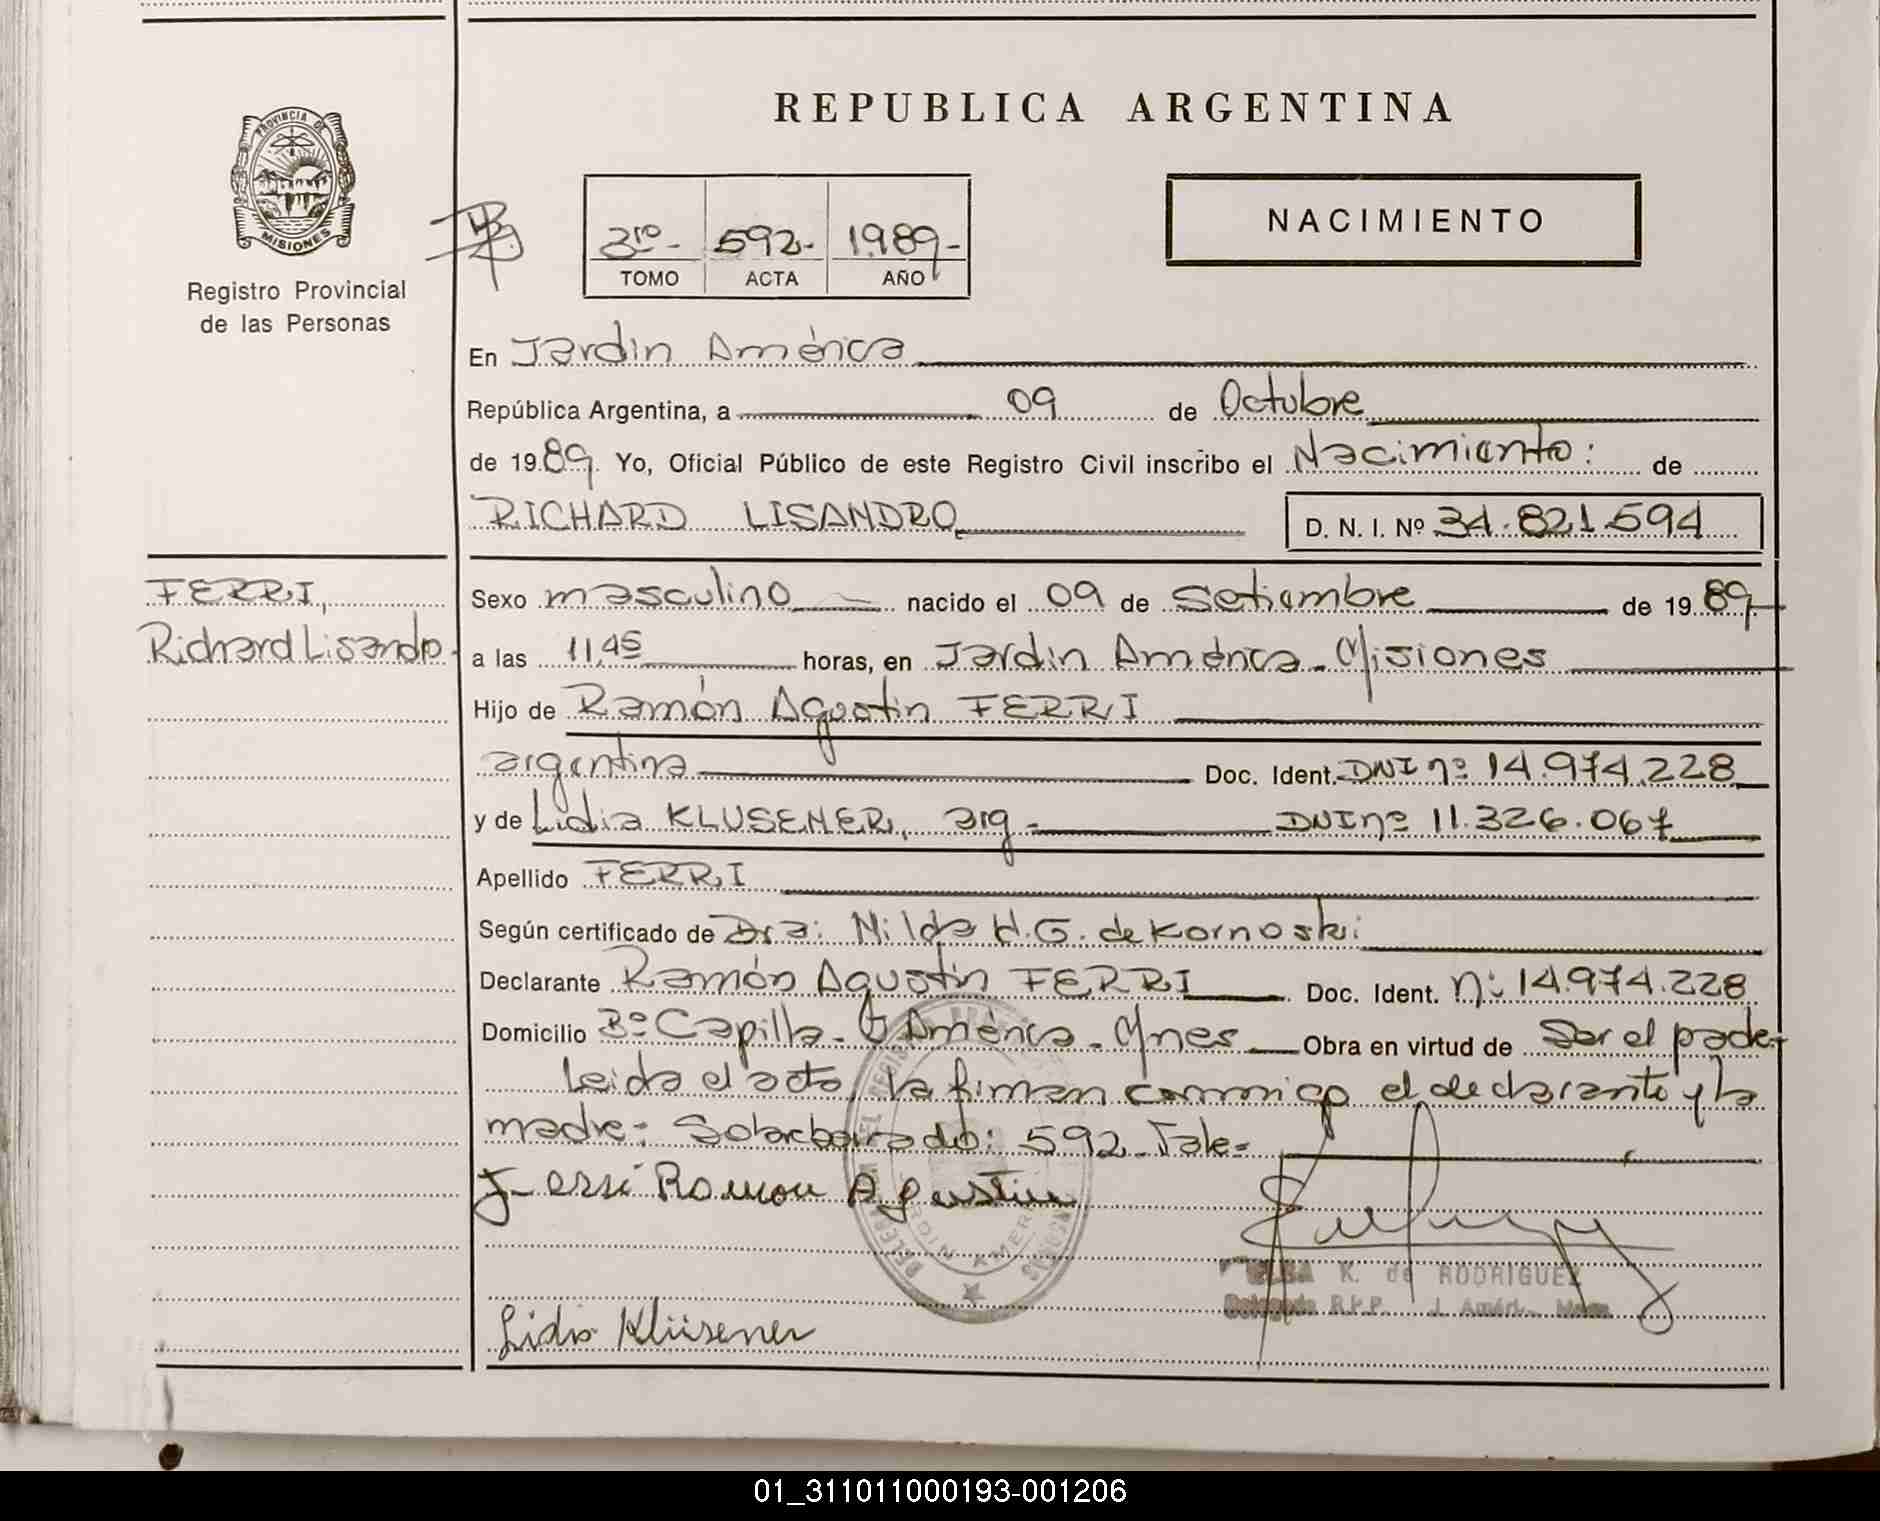 REPUBLICA ARGENTINA
PROVINCIA DE
MISIONES
Registro Provincial
de las Personas
3ro- 592- 1.989-
TOMO ACTA AÑO
NACIMIENTO
En Jardin América
República Argentina, a 09 de Octubre
de 1989. Yo, Oficial Público de este Registro Civil inscribo el Nacimiento: de
RICHARD LISANDRO, D. N. I. Nº 34.821.594
FERRI,
Richard Lisandro-
Sexo masculino nacido el 09 de Setiembre de 1989-
a las 11,45 horas, en Jardin América - Misiones
Hijo de Ramón Agustin FERRI
argentina Doc. Ident. DNI nº 14.974.228
y de Lidia KLUSENER, arg- DNI nº 11.326.067
Apellido FERRI
Según certificado de Dra: Nilda H.G. de Kornoski:
Declarante Ramón Agustin FERRI Doc. Ident. Nº: 14.974.228
Domicilio Bº Capilla - J América - Mnes Obra en virtud de Ser el padre-
Leida el acta, la firman conmigo el declarante y la
madre: Sobreborrado: 592 - Vale-
Ramon Agustin
Lidia Klüsener
DELEGACION DEL REGISTRO
JARDIN AMERICA
ELSA K. de RODRIGUEZ
Delegada R.P.P. J. Améri. Mnes
01_311011000193-001206